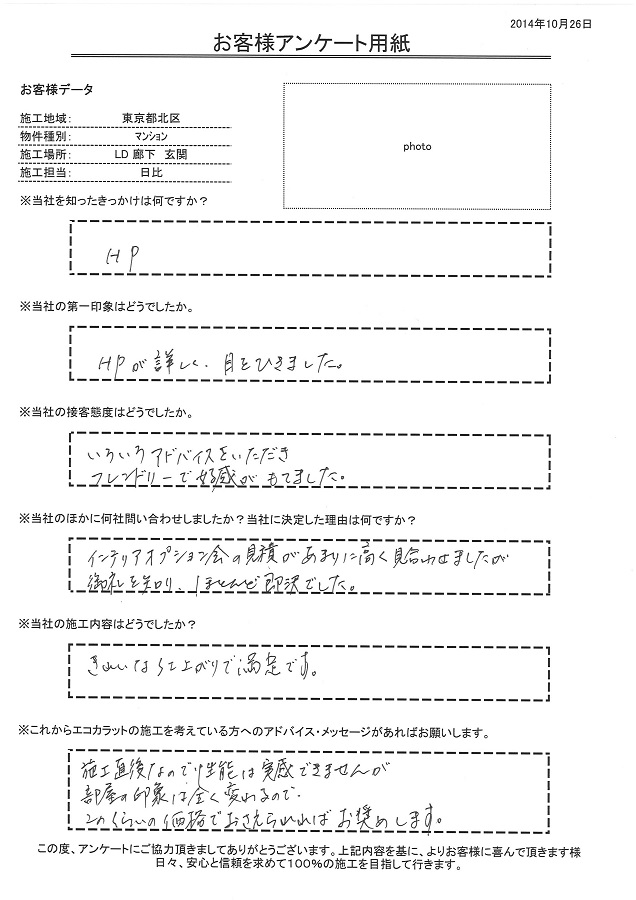 2014年10月26日
お客様アンケート用紙
お客様データ
施工地域： 東京都北区
物件種別： マンション
施工場所： LD 廊下 玄関
施工担当： 日比
photo
※当社を知ったきっかけは何ですか？
HP
※当社の第一印象はどうでしたか。
HPが詳しく、目をひきました。
※当社の接客態度はどうでしたか。
いろいろアドバイスをいただき
フレンドリーで好感がもてました。
※当社のほかに何社問い合わせしましたか？当社に決定した理由は何ですか？
インテリアオプション会の見積があまりに高く見合わせましたが
御社を知り、ほとんど即決でした。
※当社の施工内容はどうでしたか？
きれいな仕上がりで満足です。
※これからエコカラットの施工を考えている方へのアドバイス・メッセージがあればお願いします。
施工直後なので性能は実感できませんが
部屋の印象は全く変わるので
このくらいの価格でおさえられればお奨めします。
この度、アンケートにご協力頂きましてありがとうございます。上記内容を基に、よりお客様に喜んで頂きます様
日々、安心と信頼を求めて100%の施工を目指して行きます。